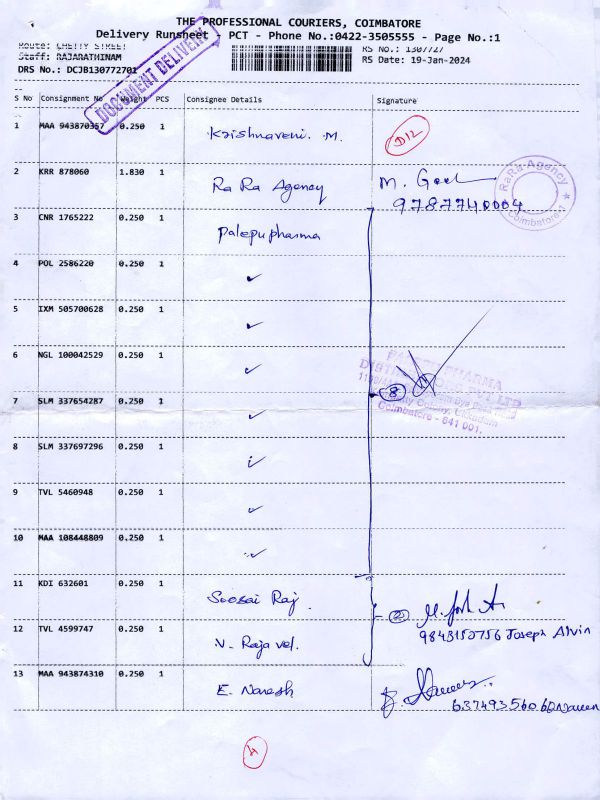 THE PROFESSIONAL COURIERS, COIMBATORE
Delivery Runsheet - PCT - Phone No.:0422-3505555 - Page No.:1
Route: CHETTY STREET
RS No.: 1307727
Staff: RAJARATHINAM
RS Date: 19-Jan-2024
DRS No.: DCJB130772701
DOCUMENT DELIVERY
S No Consignment No Weight PCS Consignee Details Signature
1 MAA 943870357 0.250 1 Krishnaveni. M. D12
2 KRR 878060 1.830 1 Ra Ra Agency M.
9787740004
RaRa Agency
Coimbatore-1
3 CNR 1765222 0.250 1 Palepu pharma
4 POL 2586220 0.250 1 ✓
5 IXM 505700628 0.250 1 ✓
6 NGL 100042529 0.250 1 ✓
PHARMA
PVT LTD
7 SLM 337654287 0.250 1 ✓ 8
Coimbatore - 641 001.
8 SLM 337697296 0.250 1 ✓
9 TVL 5460948 0.250 1 ✓
10 MAA 108448809 0.250 1 ✓
11 KDI 632601 0.250 1 Soosai Raj.
2
12 TVL 4599747 0.250 1 V. Raja vel.
9843152756 Joseph Alvin
13 MAA 943874310 0.250 1 E. Naresh
4